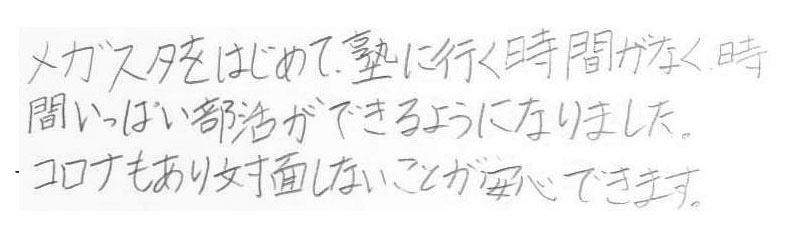 メガスタをはじめて、塾に行く時間がなく、時
間いっぱい部活ができるようになりました。
コロナもあり対面しないことが安心できます。